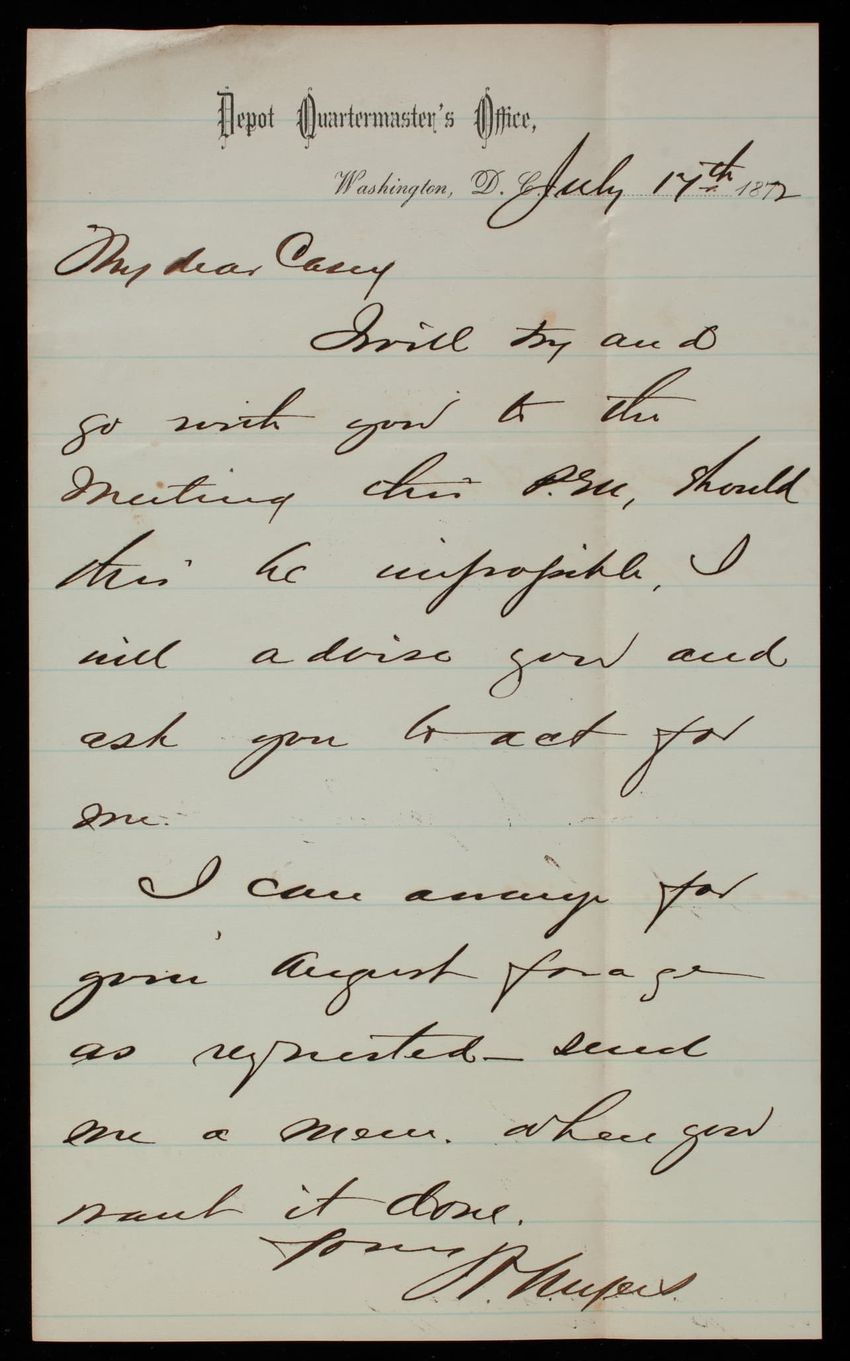 Depot Quartermaster's Office,
Washington, D. C. July 17th 1872
My dear Casey
I will try and
go with you to the
Meeting this P.M, should
this be impossible, I
will advise you and
ask you to act for
me.
I can arrange for
your August forage
as requested — send
me a mem. when you
want it done.
Yours
Myers